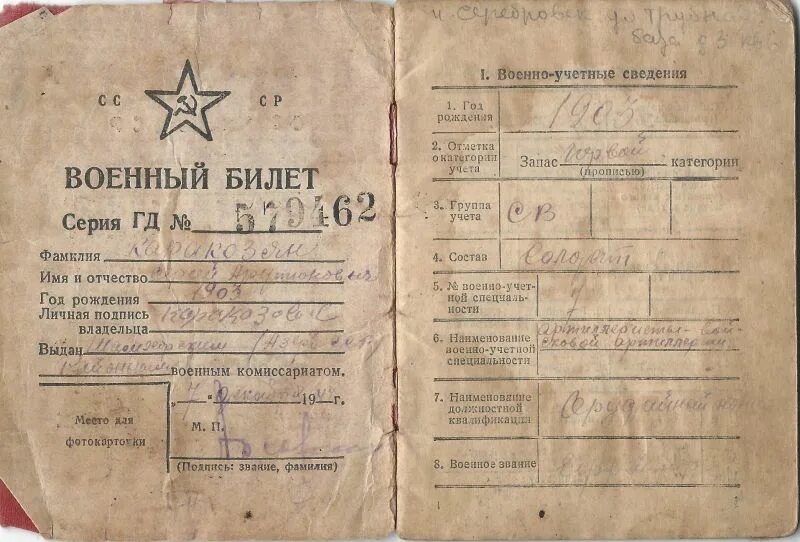 СС СР
ВОЕННЫЙ БИЛЕТ
Серия ГД № 579462
Фамилия Каракозян
Имя и отчество Арутюнович
Год рождения 1903
Личная подпись
владельца
Выдан
районным военным комиссариатом.
„7“ декабря 194 г.
М. П.
Место для
фотокарточки
(Подпись: звание, фамилия)
п. Серебровск ул Трубная
база д 3 кв 6
I. Военно-учетные сведения
1. Год
рождения 1903
2. Отметка
о категории
учета
Запас первой категории
(прописью)
3. Группа
учета СВ
4. Состав Солдат
5. № военно-учет-
ной специаль-
ности
6. Наименование
военно-учетной
специальности
артиллеристы вой-
сковой артиллерии
7. Наименование
должностной
квалификации
Орудийный
8. Военное звание